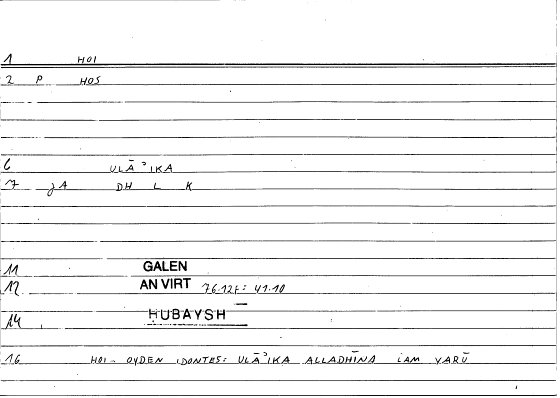 1 HOI
2 P HOS
6 ULĀʾIKA
7 jA DH L K
11 GALEN
12 AN VIRT 76.12f: 41.10
14 ḤUBAYSH
16 HOI - OYDEN IDONTES: ULĀʾIKA ALLADHĪNA LAM YARŪ